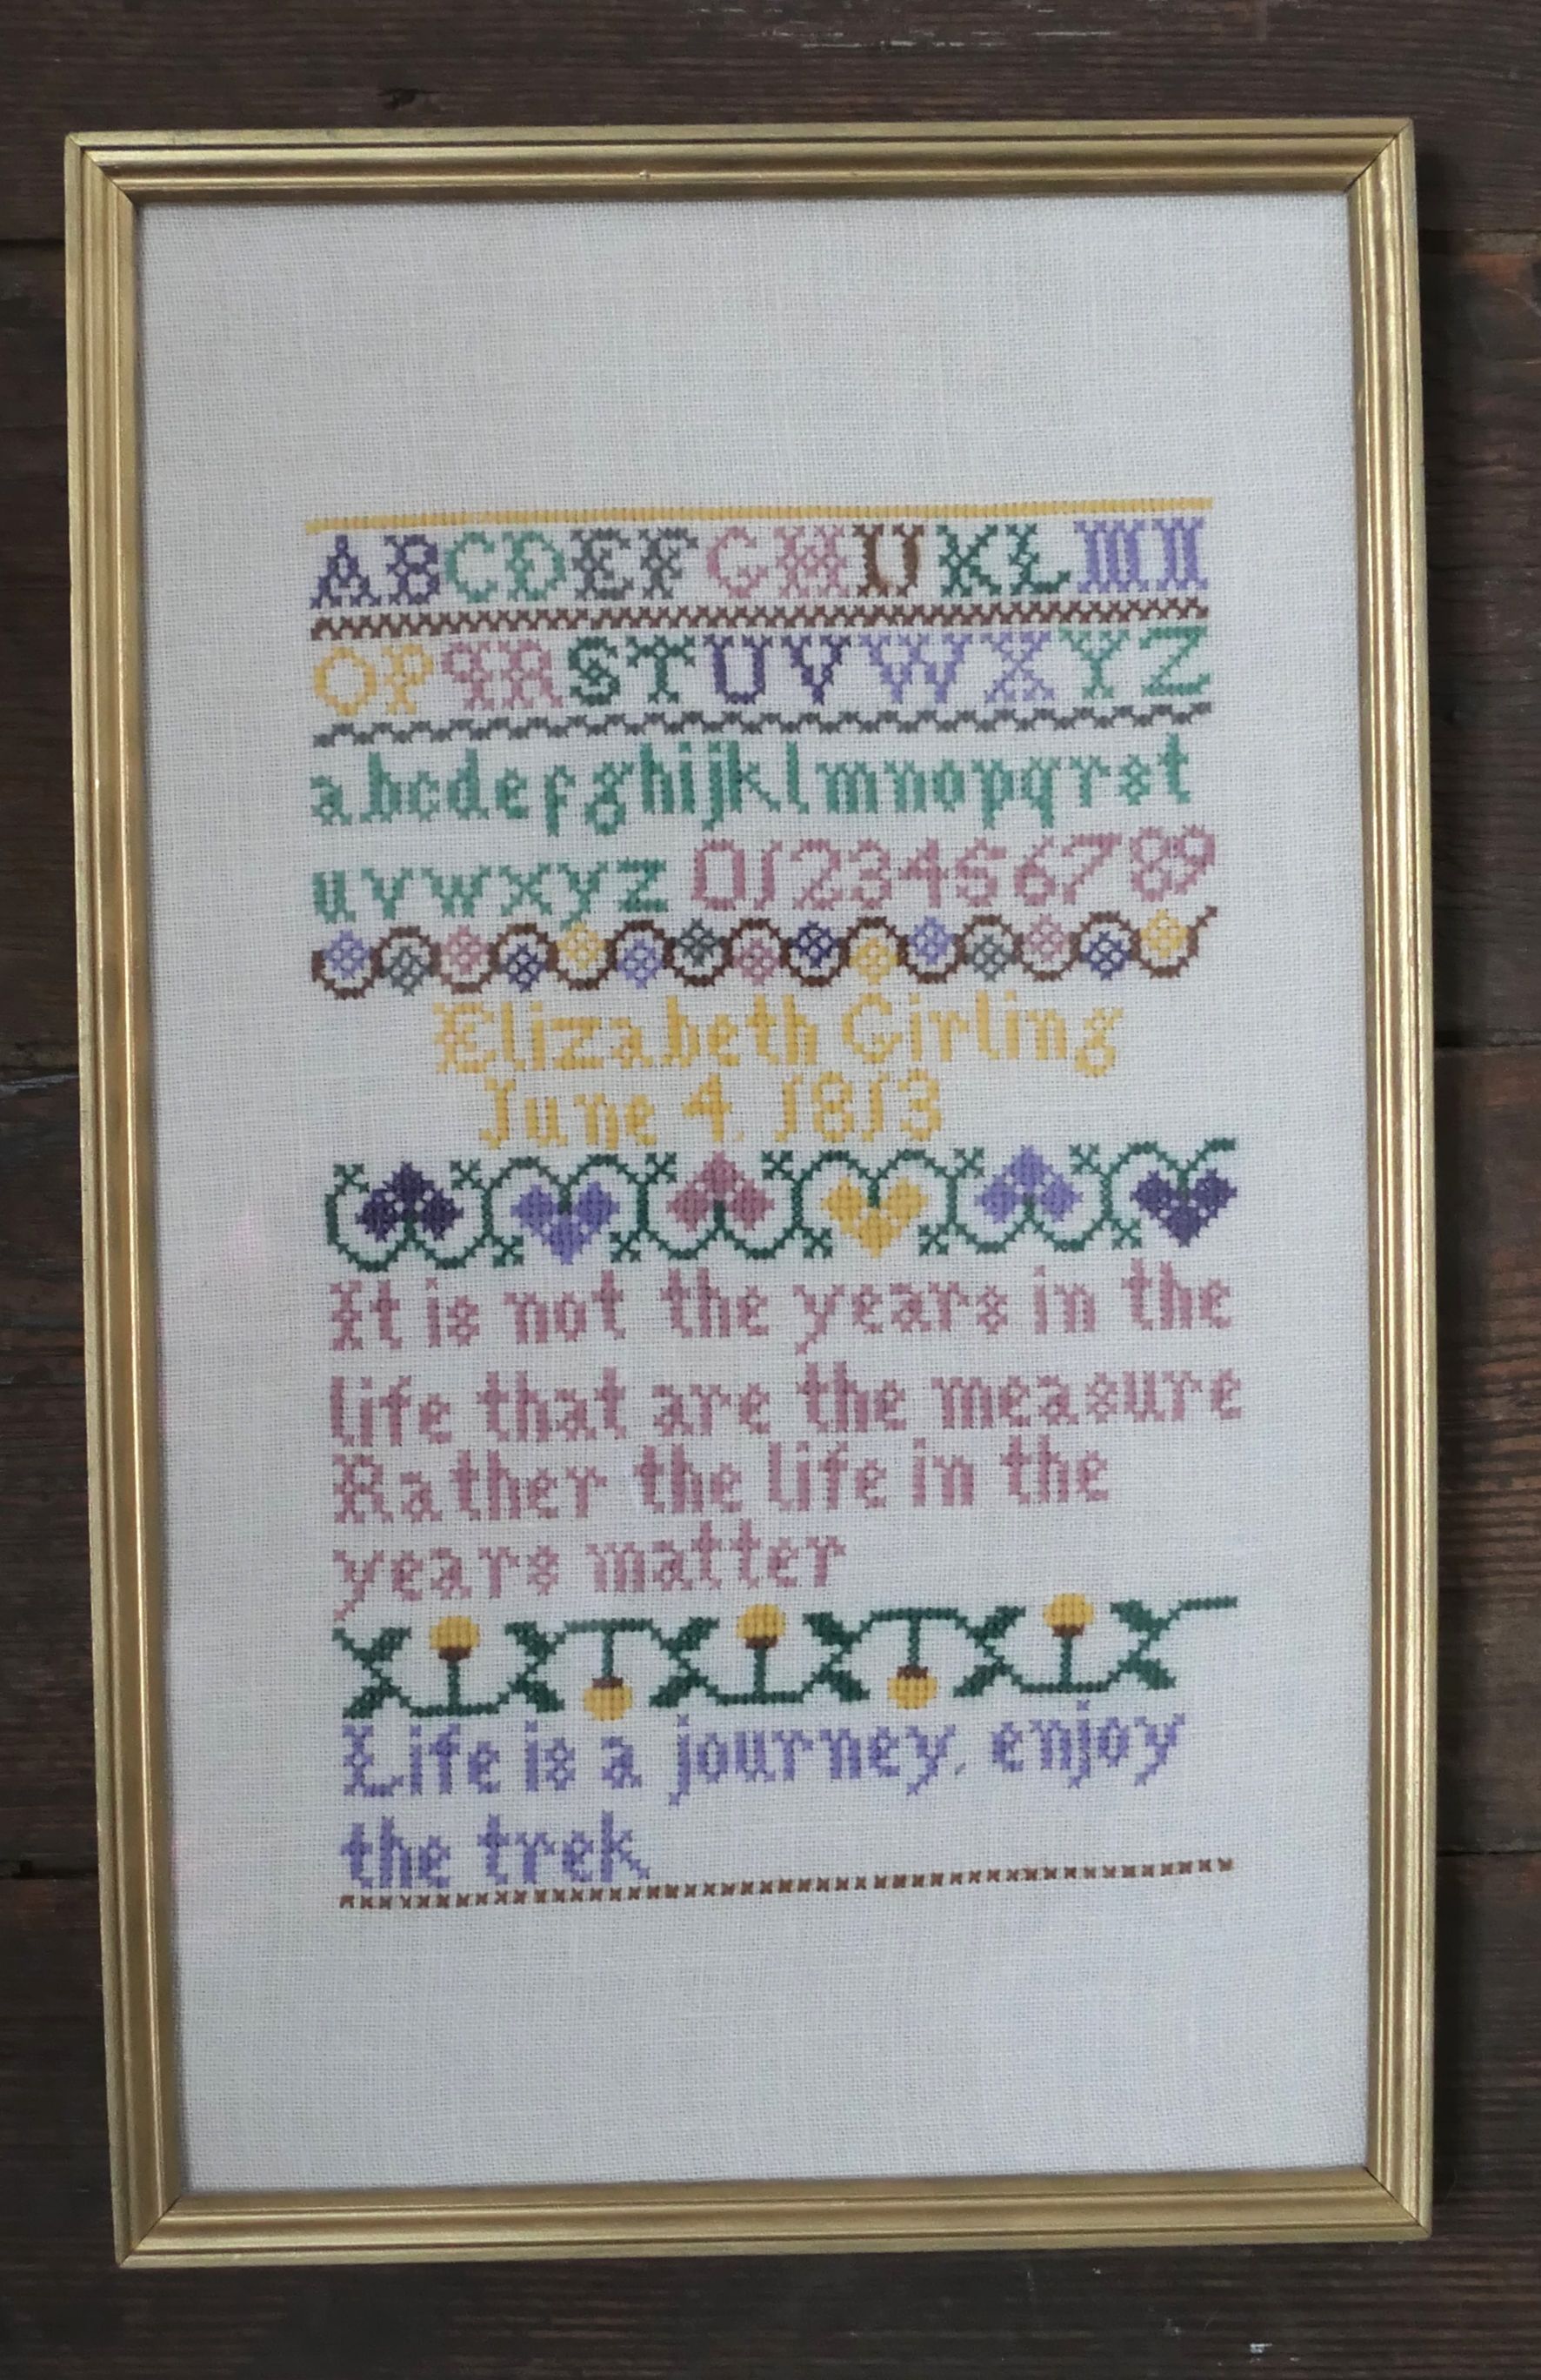 ABCDEFGHIJKLMN
OPQRSTUVWXYZ
abcdefghijklmnopqrst
uvwxyz 0123456789
Elizabeth Girling
June 4, 1813
It is not the years in the
life that are the measure
Rather the life in the
years matter
Life is a journey, enjoy
the trek